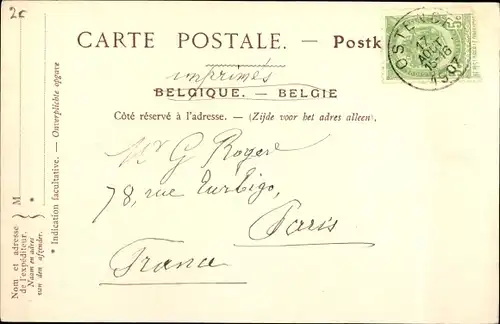 2€
CARTE POSTALE. — Postk
OSTENDE
17
AOUT
15-16
1907
imprimés
BELGIQUE. — BELGIE
Côté réservé à l'adresse. — (Zijde voor het adres alleen).
Mr G Rogere
78, rue Turbigo,
Paris
France
* Indication facultative. — Onverplichte opgave
M *
Nom et adresse
de l'expéditeur.
Naam en adres
van den afzender.